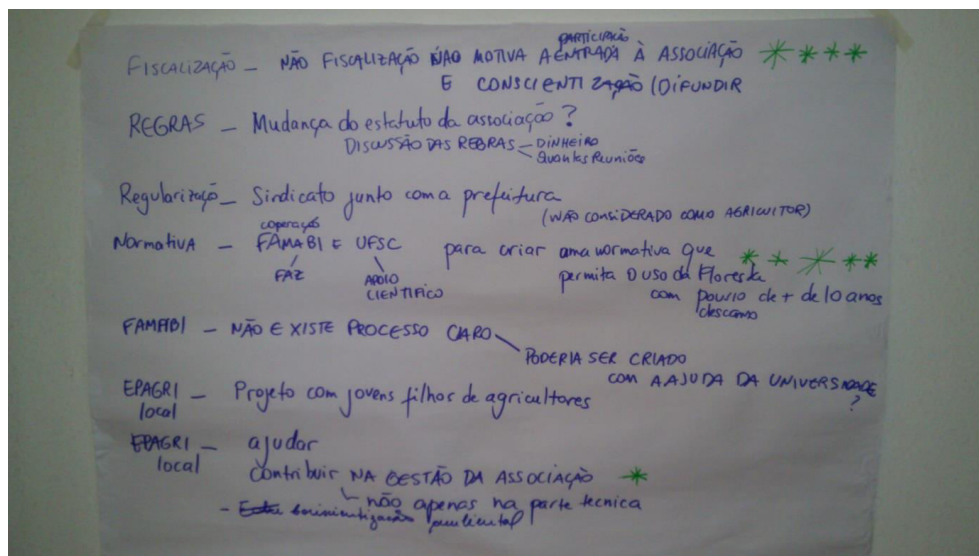 PARTICIPAÇÃO
FISCALIZAÇÃO — NÃO FISCALIZAÇÃO NÃO MOTIVA A ENTRADA À ASSOCIAÇÃO
E CONSCIENTIZAÇÃO (DIFUNDIR
REGRAS — Mudança do estatuto da associação?
DISCUSSÃO DAS REGRAS — DINHEIRO
Quantas Reuniões
Regularização — Sindicato junto com a prefeitura
(NÃO CONSIDERADO COMO AGRICULTOR)
cooperação
NORMATIVA — FAMABI E UFSC para criar uma normativa que
FAZ APOIO CIENTIFICO permita o uso da Floresta
com pousio de + de 10 anos
descanso
FAMABI — NÃO EXISTE PROCESSO CLARO
PODERIA SER CRIADO
COM A AJUDA DA UNIVERSIDADE
?
EPAGRI local — Projeto com jovens filhos de agricultores
EPAGRI local — ajudar
contribuir NA GESTÃO DA ASSOCIAÇÃO
não apenas na parte tecnica
-